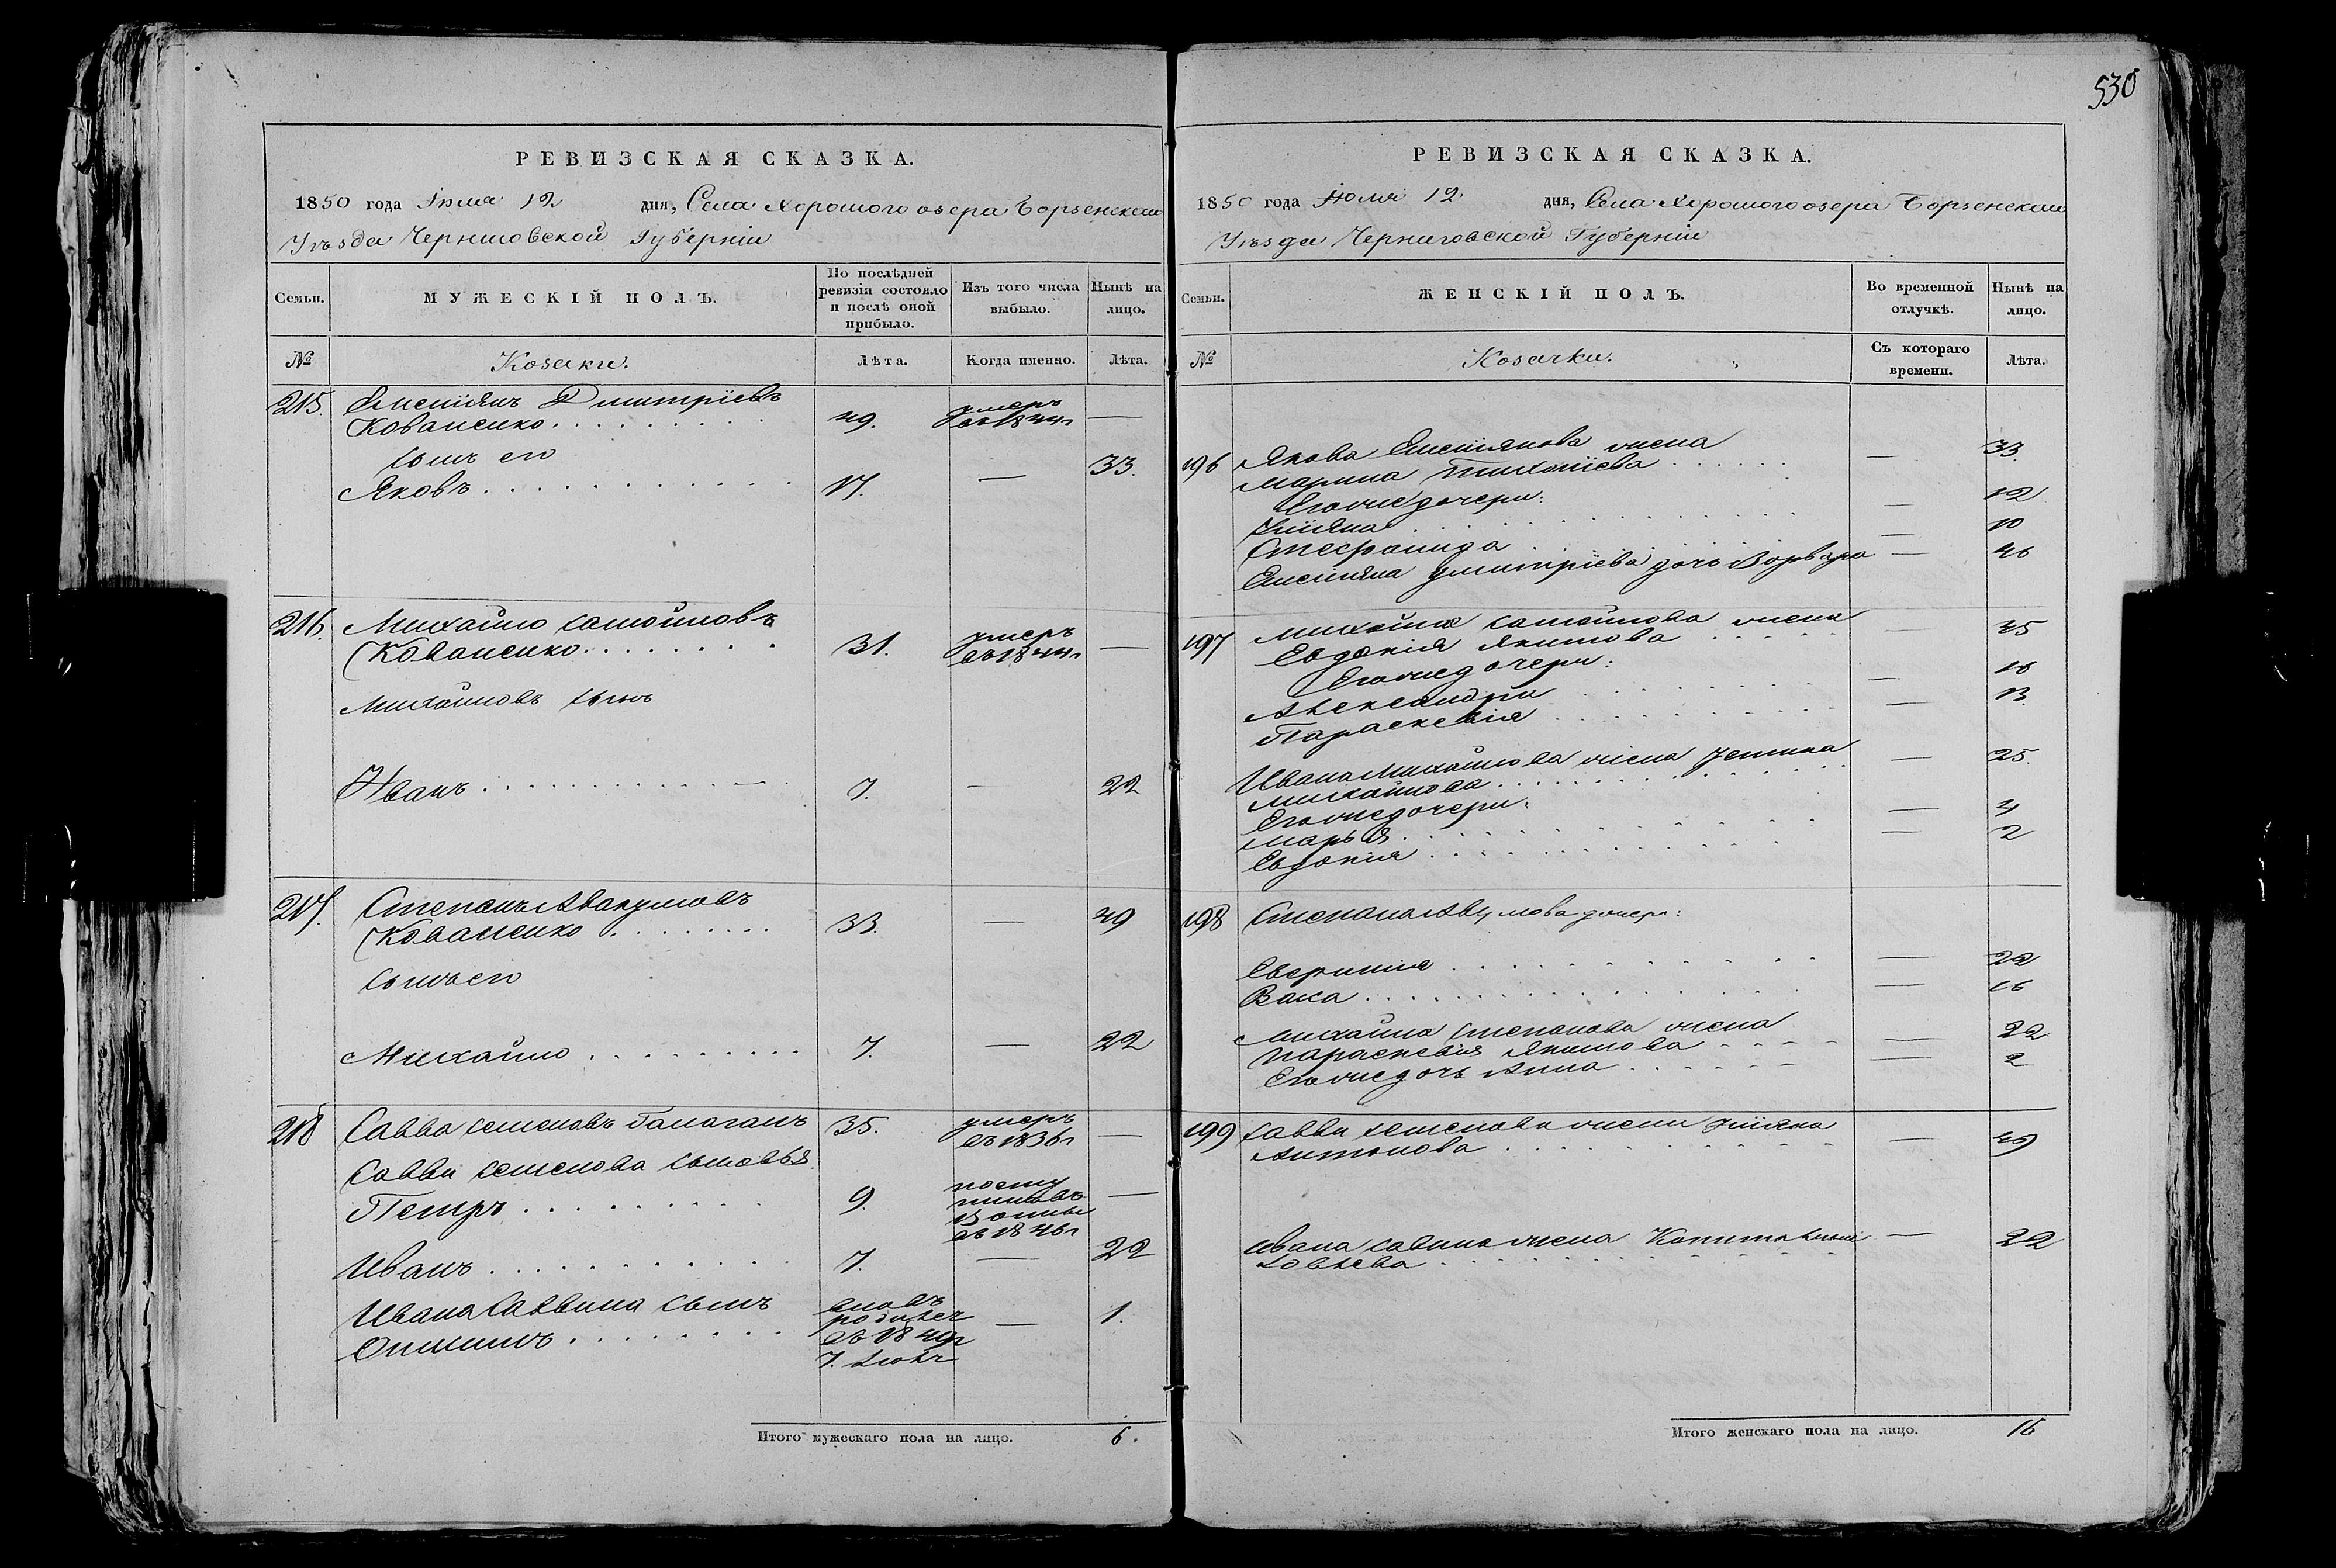 530
РЕВИЗСКАЯ СКАЗКА.
1850 года Июля 12 дня, Села Хорошого озера Борзенскаго
Уѣзда Черниговской Губерніи
Семьи.
МУЖЕСКІЙ ПОЛЪ.
По послѣдней ревизіи состояло и послѣ оной прибыло.
Изъ того числа выбыло.
Нынѣ на лицо.
№ Козаки. Лѣта. Когда именно. Лѣта.
215. Емеліянъ Дмитріевъ
Коваленко 49. умеръ въ 1844г —
сынъ его
Яковъ 17. — 33.
216. Михайло Самойловъ
Коваленко 31. умеръ въ 1844г —
Михайловъ сынъ
Иванъ 7. — 22
217. Степанъ Авакумовъ
Коваленко 33. — 49
сынъ его
Михайло 7. — 22
218 Савва Семеновъ Галаганъ 35. умеръ въ 1836г —
Саввы Семенова сыновья
Петръ 9. посту
пилъ въ
въ 1846г —
Иванъ 7. — 22
Ивана Савина сынъ вновь
родился
въ 1849г — 1.
Итого мужескаго пола на лицо. 6.
РЕВИЗСКАЯ СКАЗКА.
1850 года Июля 12 дня, Села Хорошого озера Борзенскаго
Уѣзда Черниговской Губерніи
Семьи.
ЖЕНСКІЙ ПОЛЪ.
Во временной отлучкѣ.
Нынѣ на лицо.
№ Козачки. Съ котораго времени. Лѣта.
196 Якова Емеліянова жена
Марина — 33.
Его же дочери:
Уліяна — 12
Стефанида — 10
Емеліяна Дмитріева дочь Варвара — 46
197 Михайла Самойлова жена
Евдокія Якимова — 45
Его же дочери:
Александра — 16
Параскевія — 13
Ивана Михайлова жена Устина
Михайлова — 25.
Его же дочери:
Марья — 4
Евдокія — 2
198 Степана дочери:
— 22
Васа — 16
Михайла Степанова жена
Параскевія Якимова — 22
Его же дочь Анна — 2
199 Саввы Семенова жена Уліяна
Антонова — 49
Ивана Савина жена — 22
Итого женскаго пола на лицо. 16